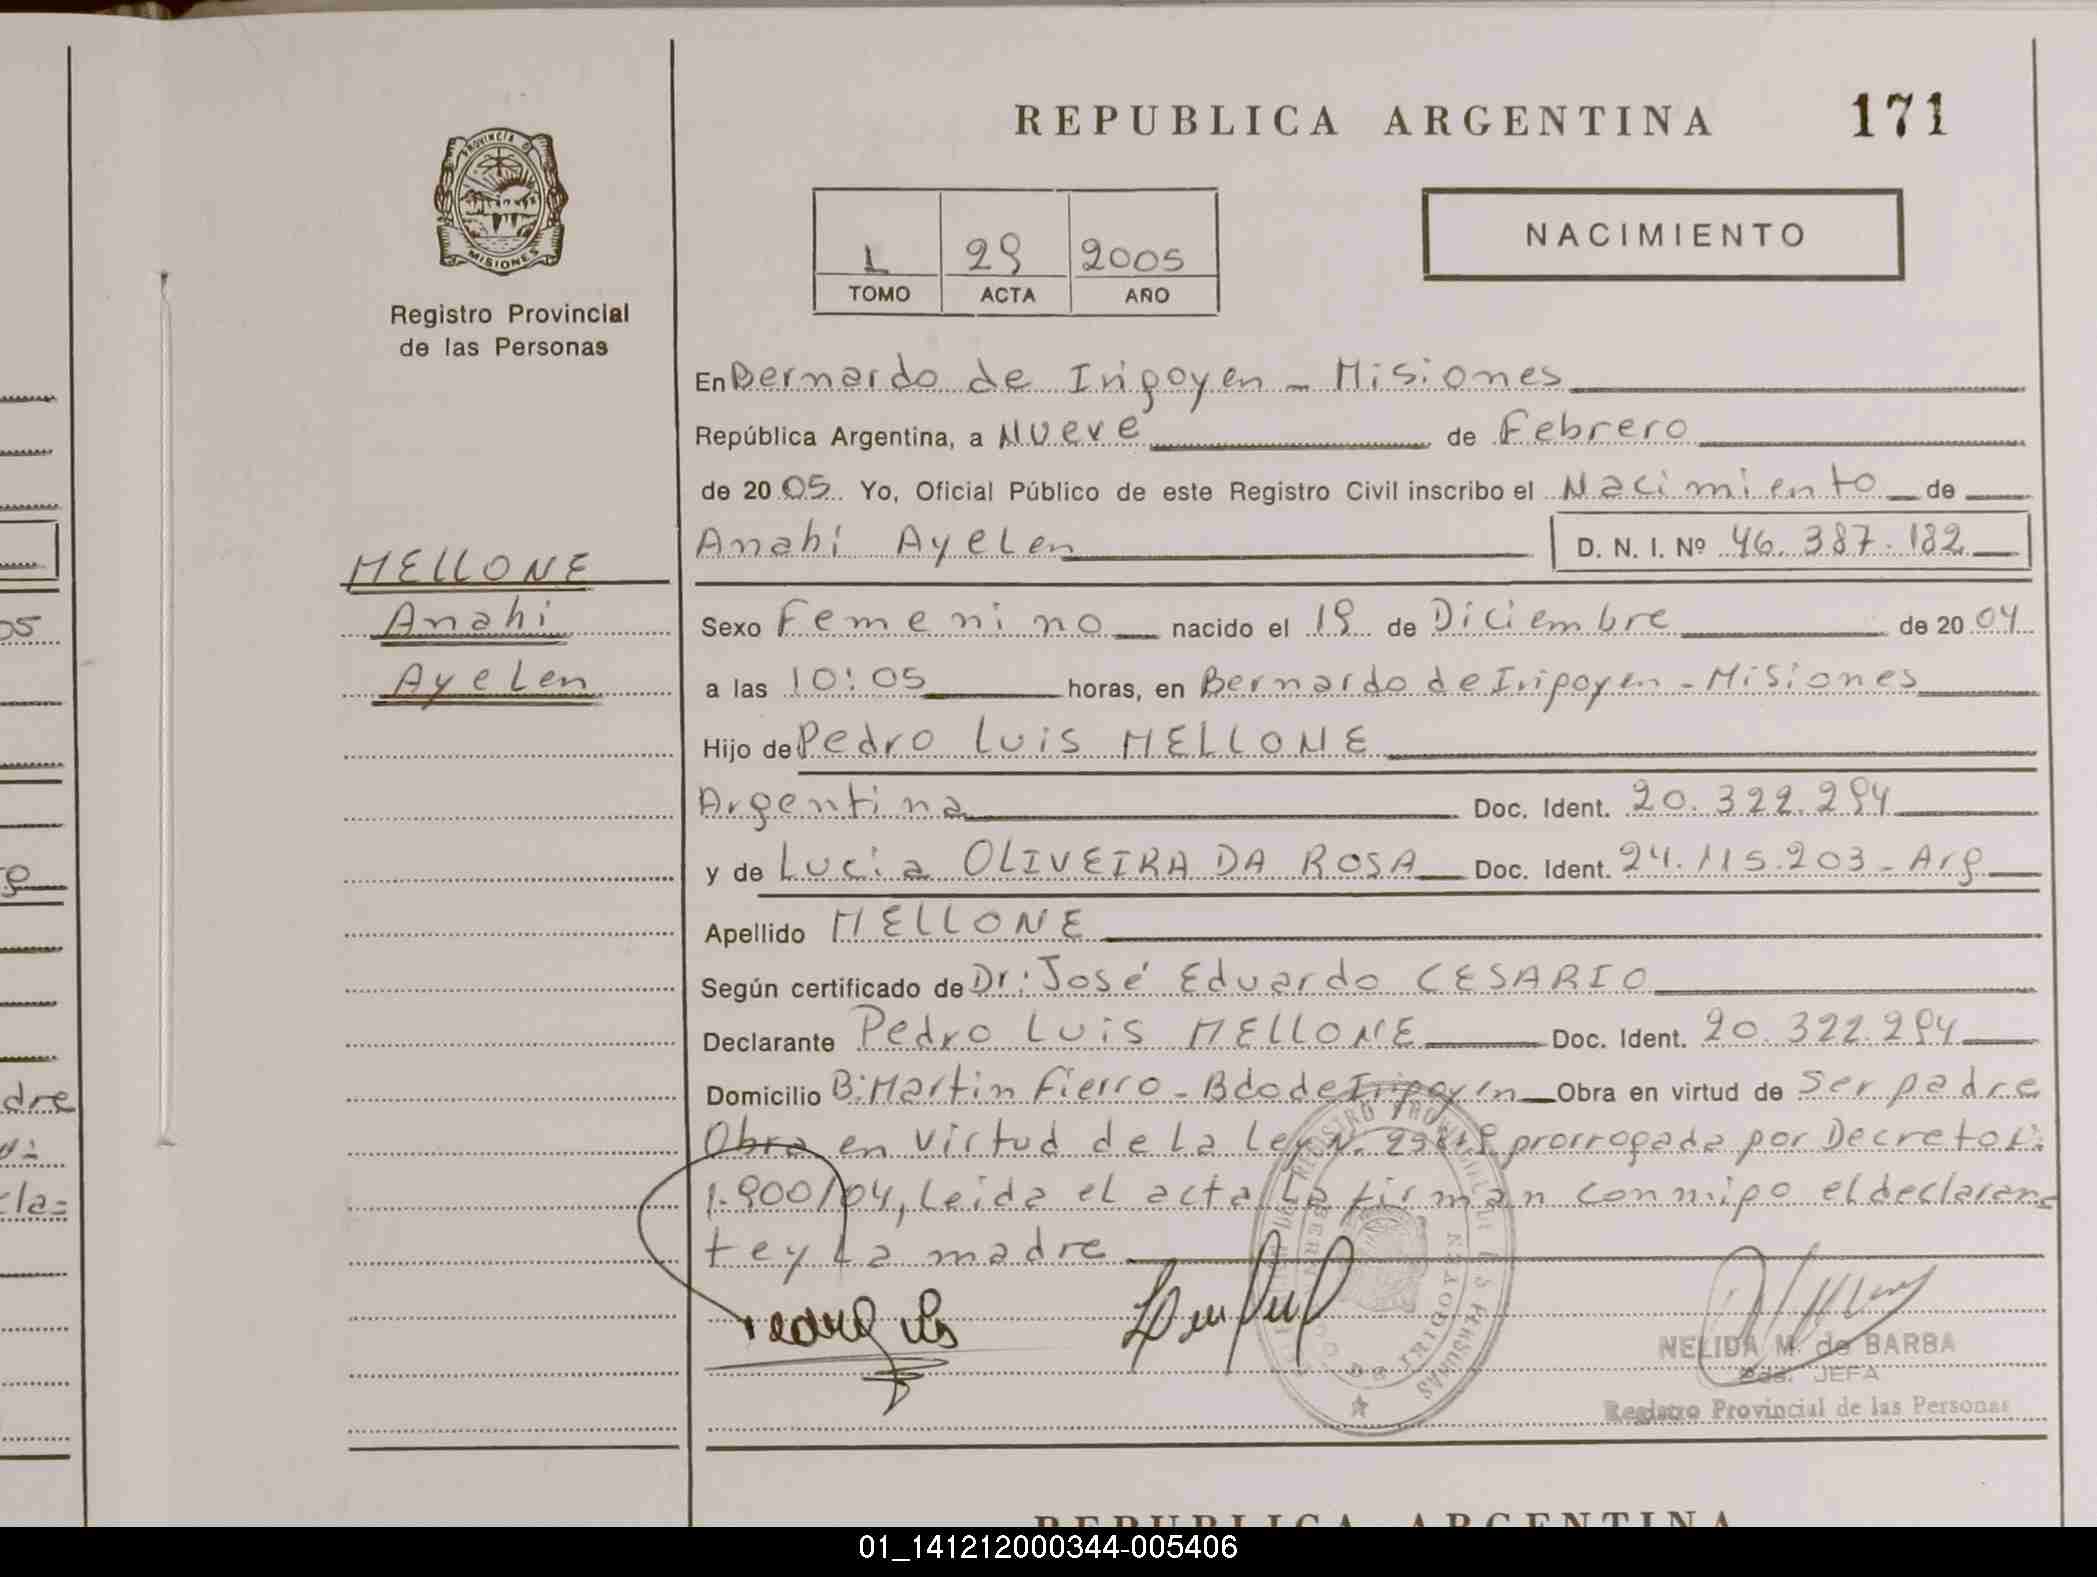 REPUBLICA ARGENTINA 171
PROVINCIA D
MISIONES
Registro Provincial
de las Personas
1 29 2005
TOMO ACTA AÑO
NACIMIENTO
En Bernardo de Irigoyen - Misiones
República Argentina, a Nueve de Febrero
de 2005. Yo, Oficial Público de este Registro Civil inscribo el Nacimiento de
Anahi Ayelen D. N. I. Nº 46.387.182
MELLONE
Anahi
Ayelen
Sexo Femenino nacido el 19 de Diciembre de 2004
a las 10:05 horas, en Bernardo de Irigoyen - Misiones
Hijo de Pedro Luis MELLONE
Argentina Doc. Ident. 20.322.294
y de Lucia OLIVEIRA DA ROSA Doc. Ident. 24.115.203 - Arg
Apellido MELLONE
Según certificado de Dr: José Eduardo CESARIO
Declarante Pedro Luis MELLONE Doc. Ident. 20.322.294
Domicilio B: Martin Fierro - Bdo de Irigoyen Obra en virtud de Ser padre
Obra en virtud de la Ley N. prorrogada por Decreto N:
1.900/04, Leida el acta la firman conmigo el declaran=
te y la madre
NELIDA M. de BARBA
JEFA
Registro Provincial de las Personas
REPUBLICA ARGENTINA
01_141212000344-005406